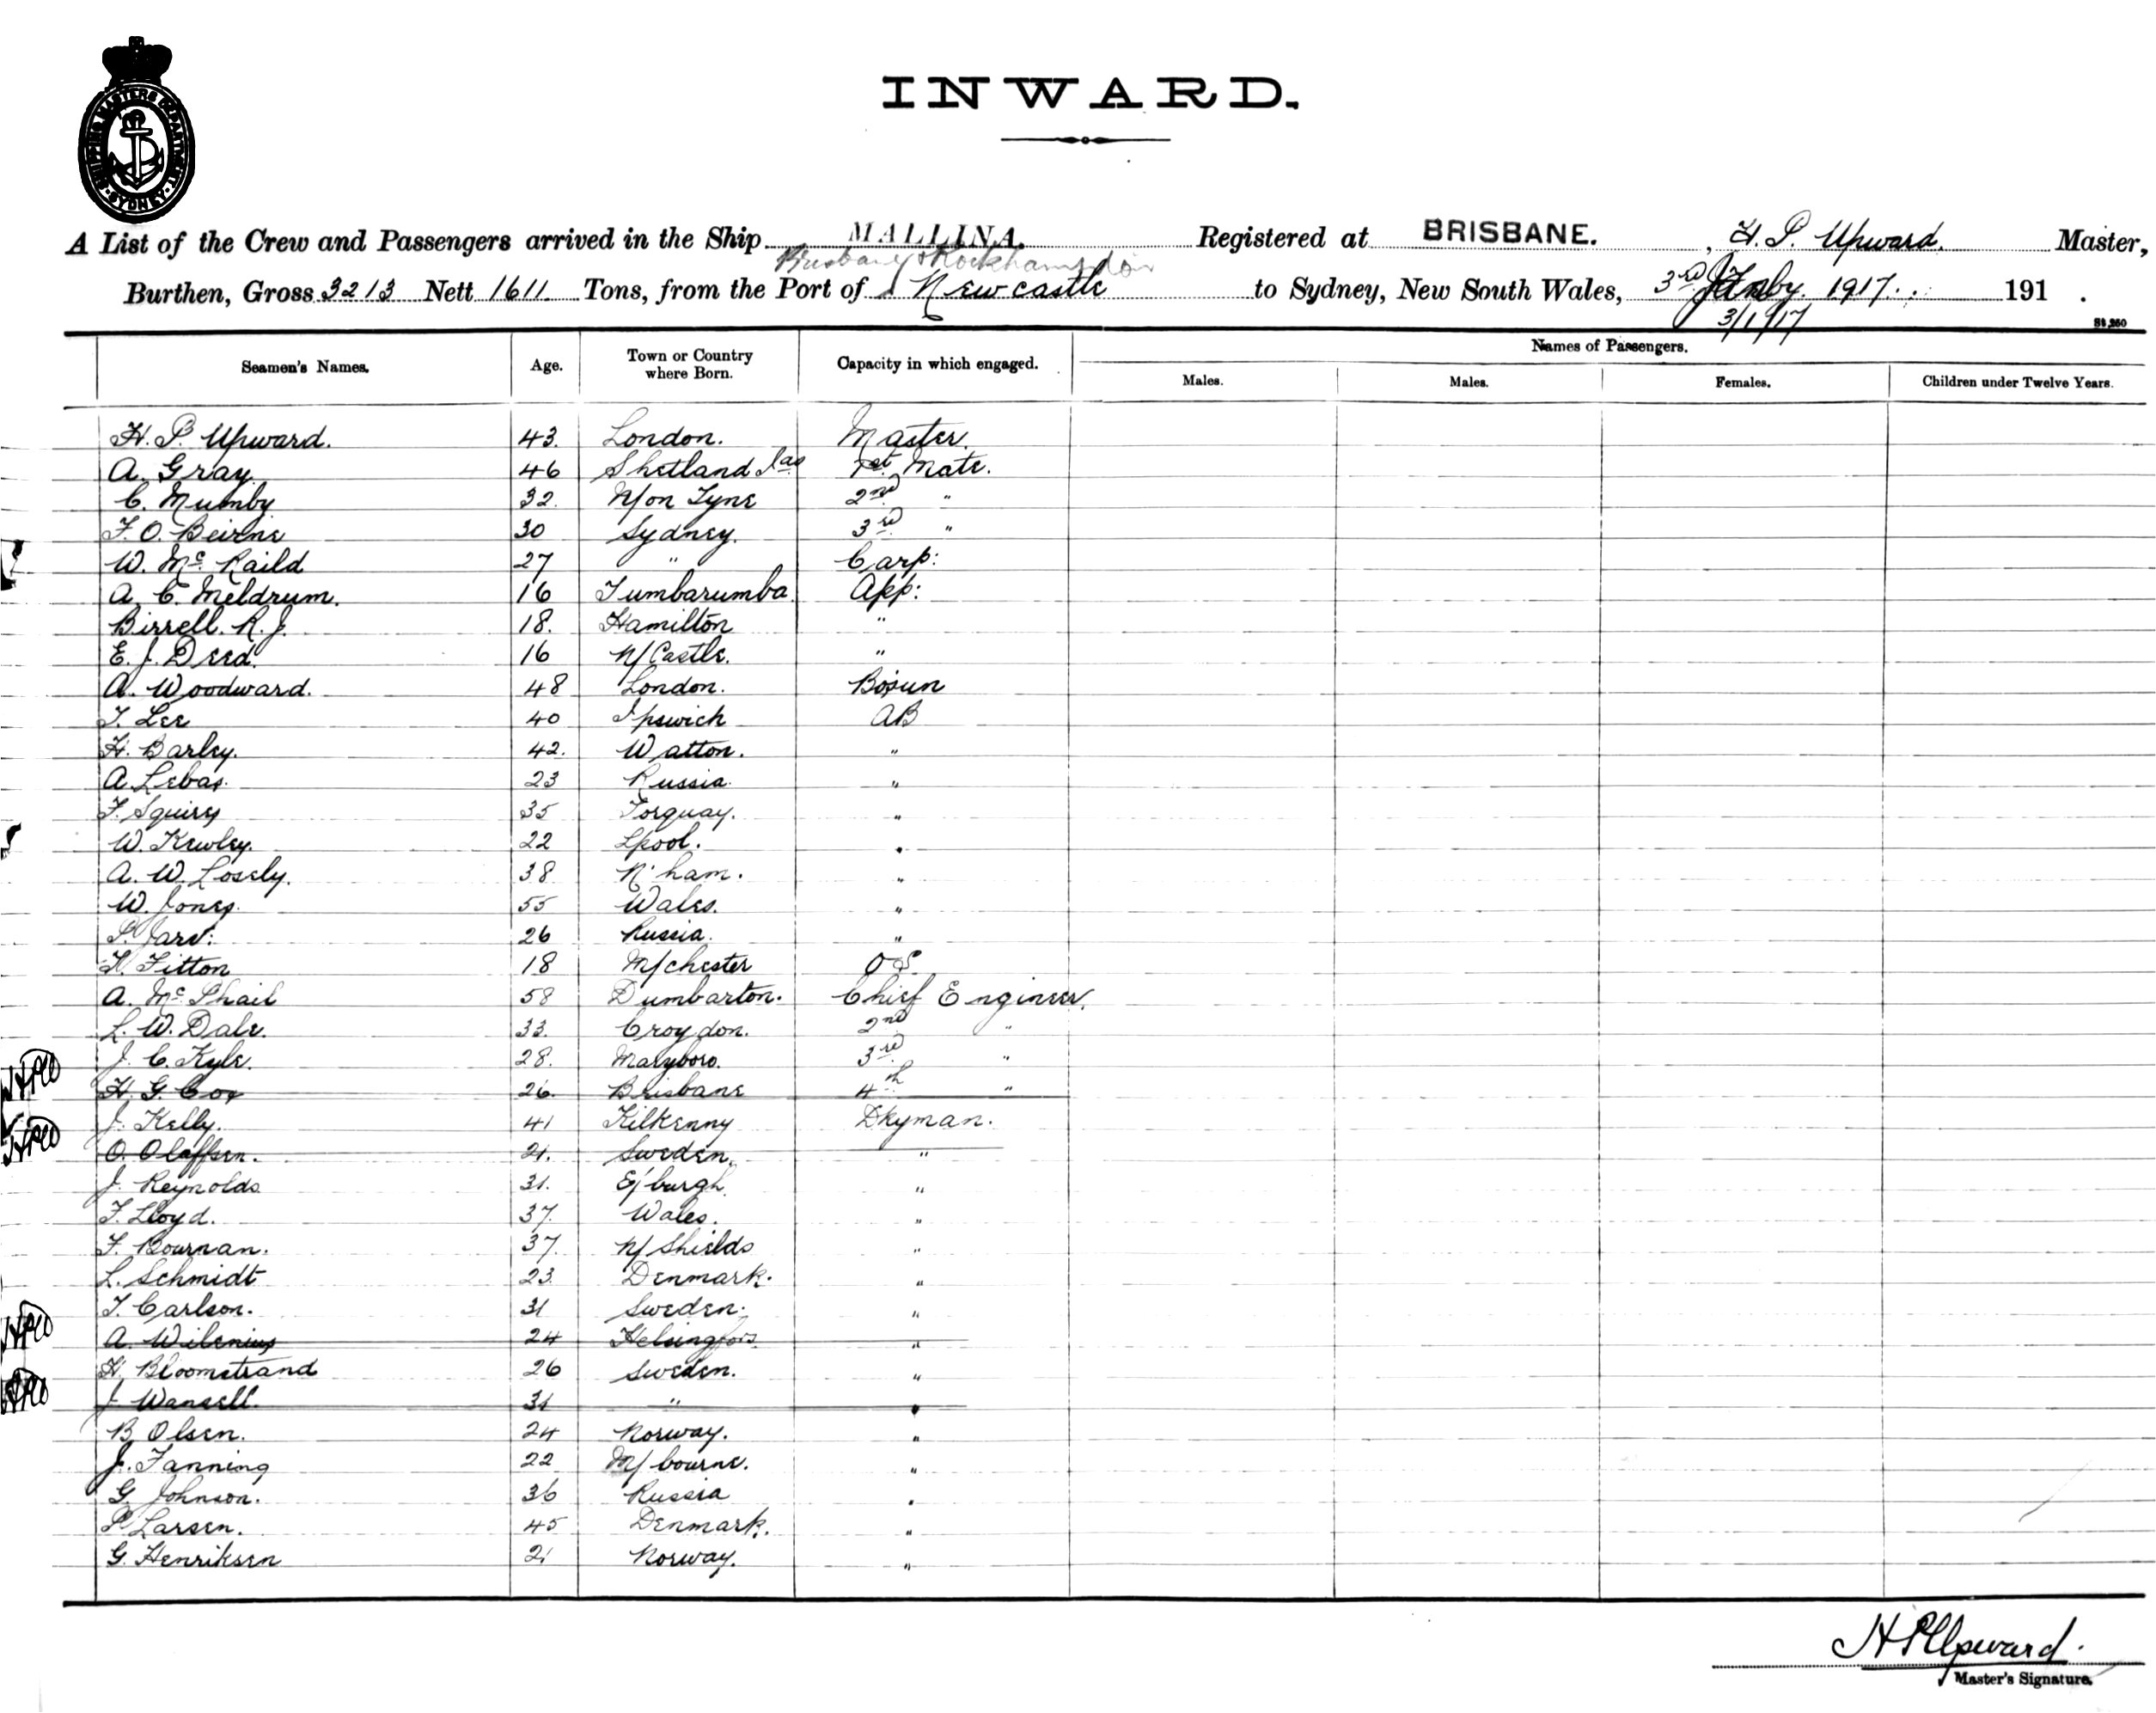 SHIPPING MASTERS DEPARTMENT SYDNEY
INWARD.
A List of the Crew and Passengers arrived in the Ship MALLINA. Registered at BRISBANE. , H. P. Upward. Master,
Brisbane Rockhampton
Burthen, Gross 3213 Nett 1611 Tons, from the Port of Newcastle to Sydney, New South Wales, 3rd 1917. 191 .
3/1/17
Names of Passengers.
Seamen's Names. Age. Town or Country where Born. Capacity in which engaged. Males. Males. Females. Children under Twelve Years.
H. P. Upward. 43. London. Master.
A. Gray. 46 Shetland Ias 1st Mate.
C. Mumby 32. N/on Tyne 2nd "
F. O. Beirne 30 Sydney. 3rd "
W. Mc Kaild 27 " Carp:
A. C. Meldrum. 16 Tumbarumba App:
Birrell. R. J. 18. Hamilton "
E. J. Deed. 16 N/Castle. "
A. Woodward. 48 London. Bosun
T. Lee 40 Ipswich AB
H. Barley. 42. Watton. "
A. Lebas. 23 Russia. "
F. Squires 35 Torquay. "
W. Kewley. 22 Lpool. "
A. W. Losely. 38 N'ham. "
W. Jones. 55 Wales. "
Jarv: 26 Russia. "
H. Fitton 18 M/chester OS
A. Mc Phail 58 Dumbarton. Chief Engineer.
L. W. Dale. 33. Croydon. 2nd "
J. C. Kyle. 28. Maryboro. 3rd "
H. G. Cox 26. Brisbane 4th "
J. Kelly. 41 Kilkenny Dkyman.
O. Olaffsen. 21. Sweden. "
J. Reynolds 31. E/burgh. "
T. Lloyd. 37. Wales. "
F. Bournan. 37. N/Shields "
L. Schmidt 23 Denmark. "
T. Carlson. 31 Sweden. "
A. Wilenius 24 Helsingfors. "
H. Bloomstrand 26 Sweden. "
J. Wansell. 31 " "
B. Olsen. 24 Norway. "
J. Fanning 22 M/bourne. "
G. Johnson. 36 Russia "
P. Larsen. 45 Denmark. "
G. Henriksen 21 Norway. "
H P Upward.
Master's Signature.